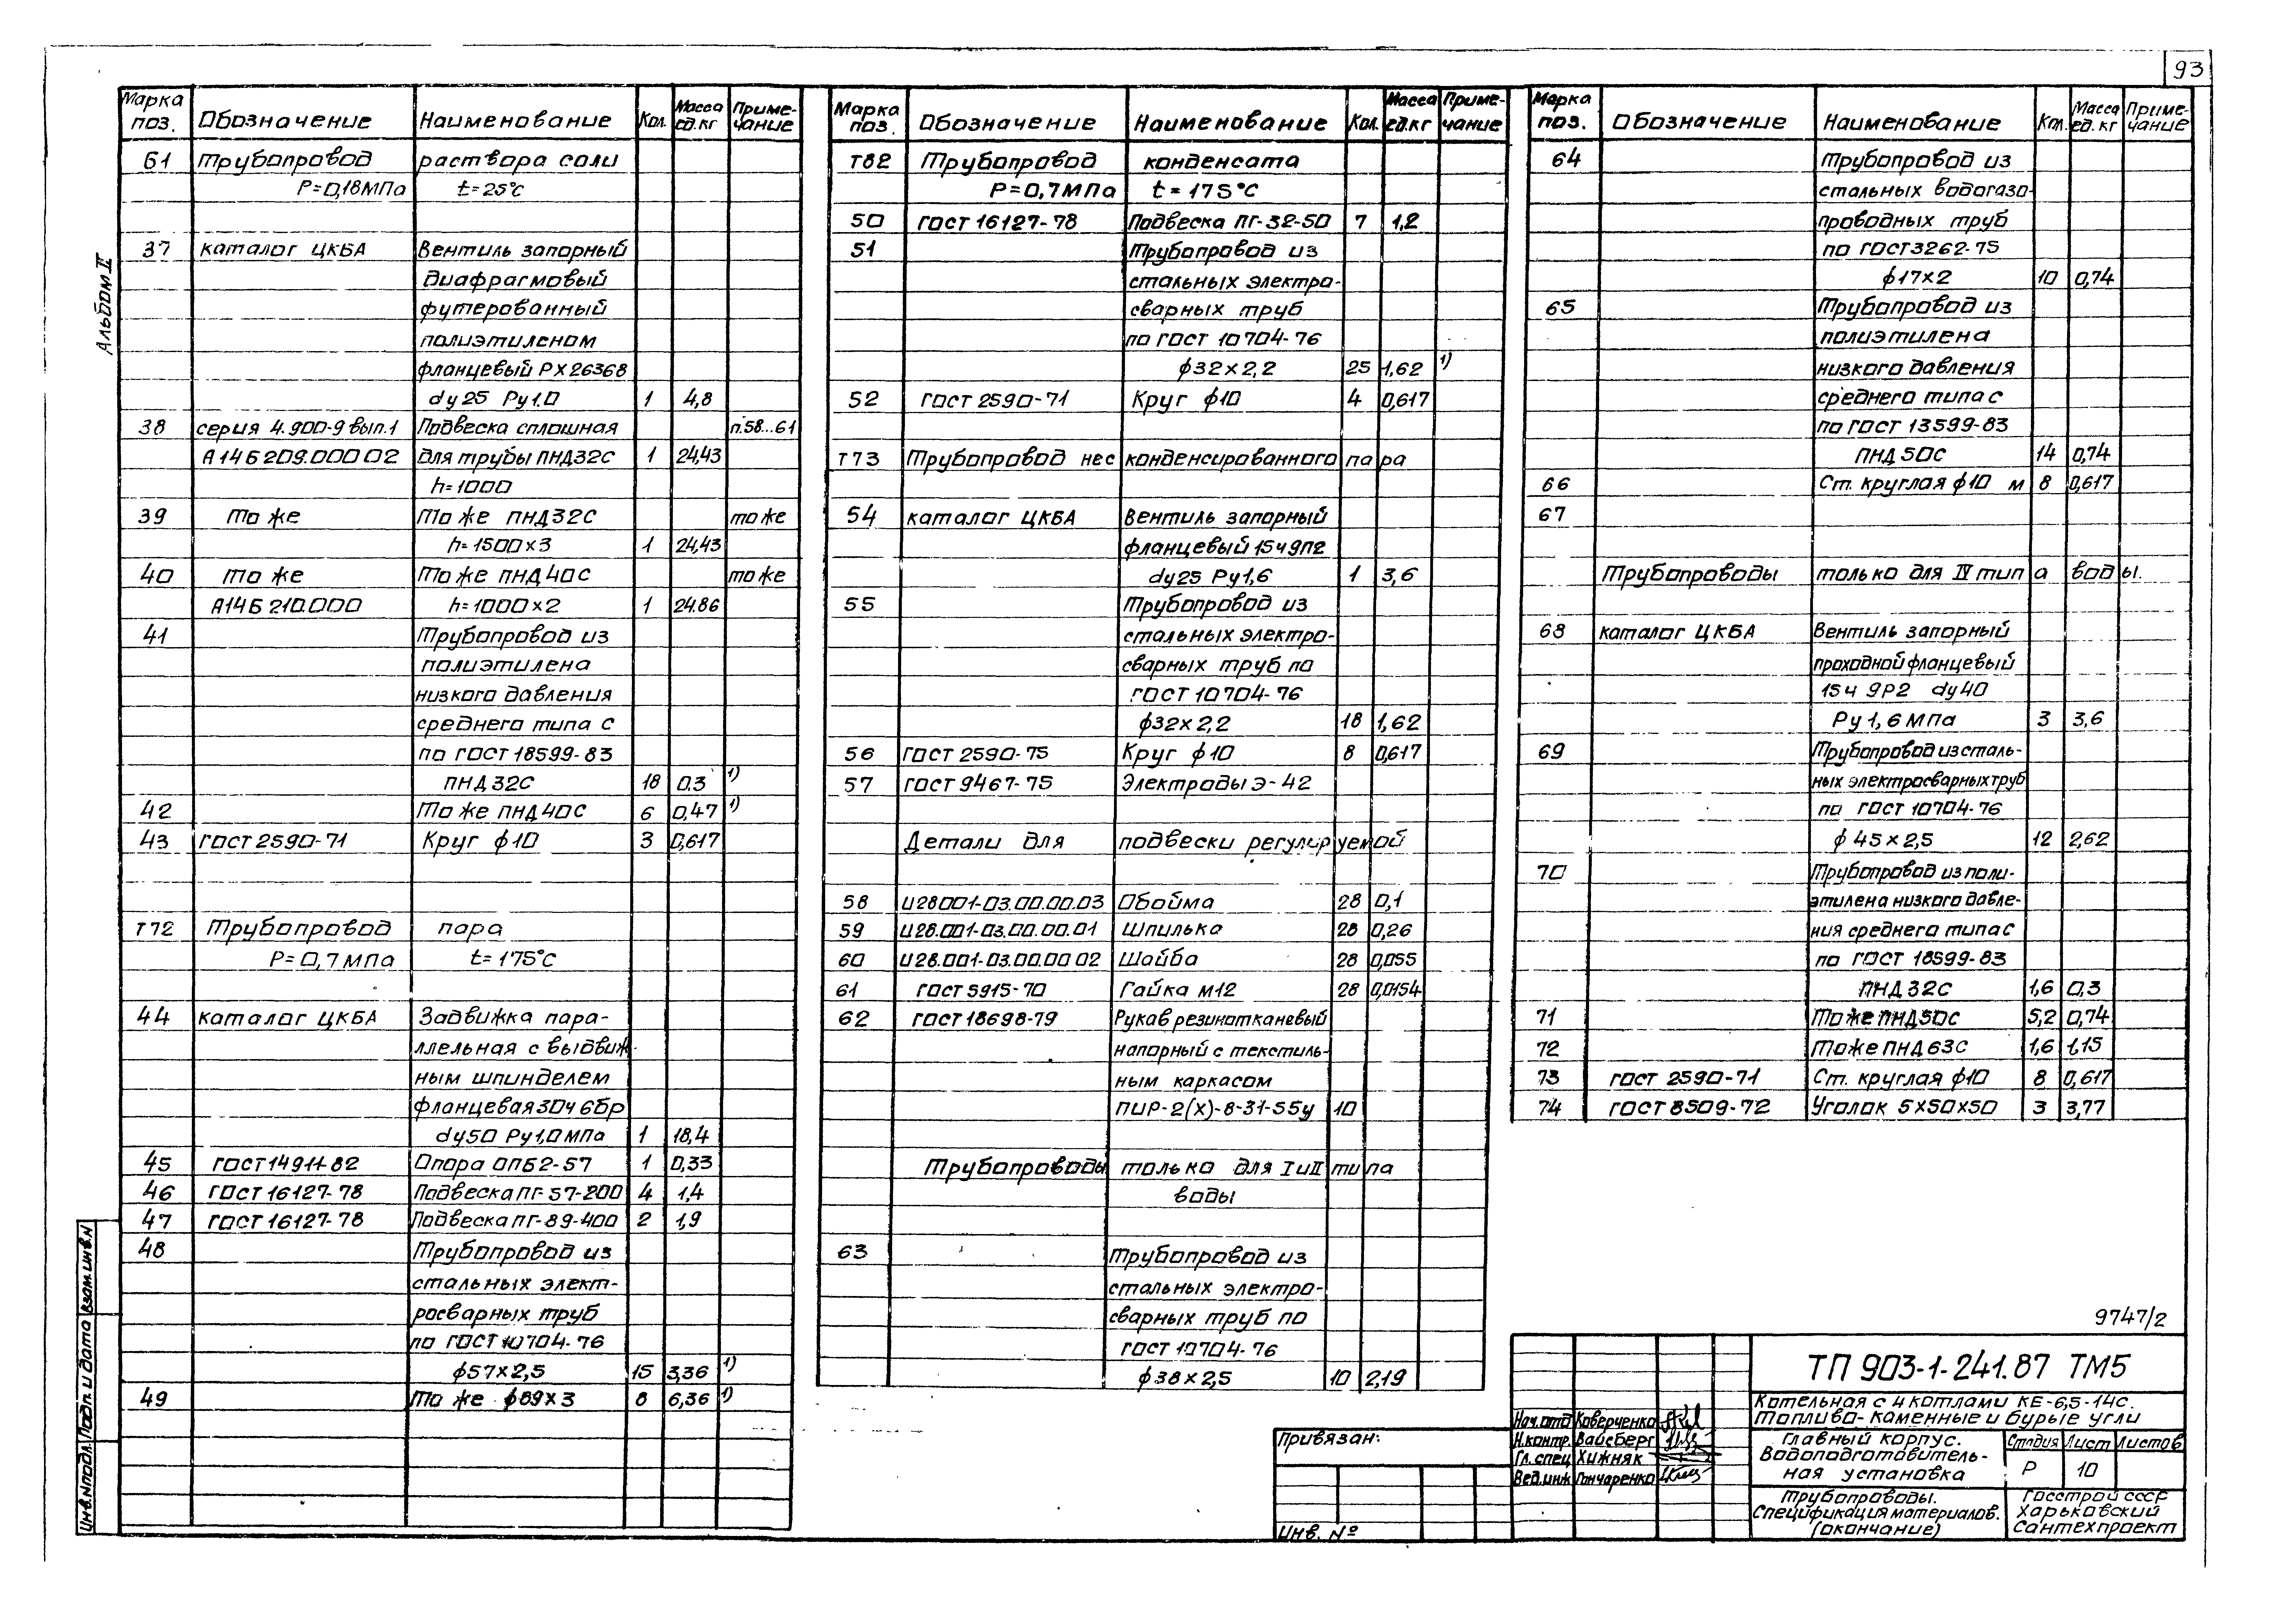 93
Альбом II
Марка поз. Обозначение Наименование Кол. Масса ед.кг Примечание
Б1 Трубопровод раствора соли
Р=0,18МПа t=25°С
37 каталог ЦКБА Вентиль запорный
диафрагмовый
футерованный
полиэтиленом
фланцевый РХ26368
dу25 Ру1.0 1 4,8
38 серия 4.900-9 вып.1 Подвеска сплошная п.58...61
А14Б209.000 02 для трубы ПНД32С 1 24,43
h=1000
39 то же То же ПНД32С то же
h=1500×3 1 24,43
40 то же То же ПНД40С то же
А14Б210.000 h=1000×2 1 24.86
41 Трубопровод из
полиэтилена
низкого давления
среднего типа С
по ГОСТ 18599-83
ПНД32С 18 0.3 1)
42 То же ПНД40С 6 0,47 1)
43 ГОСТ 2590-71 Круг ф10 3 0,617
Т72 Трубопровод пара
Р=0,7МПа t=175°С
44 каталог ЦКБА Задвижка пара-
ллельная с выдвиж-
ным шпинделем
фланцевая 30ч6бр
dу50 Ру1,0 МПа 1 18,4
45 ГОСТ14911-82 Опора ОПБ2-57 1 0,33
46 ГОСТ 16127-78 Подвеска ПГ-57-200 4 1,4
47 ГОСТ 16127-78 Подвеска ПГ-89-400 2 1,9
48 Трубопровод из
стальных элект-
росварных труб
по ГОСТ 10704-76
ф57×2,5 15 3,36 1)
49 То же ф89×3 8 6,36 1)
Марка поз. Обозначение Наименование Кол. Масса ед.кг Примечание
Т82 Трубопровод конденсата
Р=0,7МПа t=175°С
50 ГОСТ 16127-78 Подвеска ПГ-32-50 7 1,2
51 Трубопровод из
стальных электро-
сварных труб
по ГОСТ 10704-76
ф32×2,2 25 1,62 1)
52 ГОСТ 2590-71 Круг ф10 4 0,617
Т73 Трубопровод нес конденсированного пара
54 каталог ЦКБА Вентиль запорный
фланцевый 15ч9п2
dу25 Ру1,6 1 3,6
55 Трубопровод из
стальных электро-
сварных труб по
ГОСТ 10704-76
ф32×2,2 18 1,62
56 ГОСТ 2590-75 Круг ф10 8 0,617
57 ГОСТ 9467-75 Электроды Э-42
Детали для подвески регулируемой
58 И28001-03.00.00.03 Обойма 28 0,1
59 И28.001-03.00.00.01 Шпилька 28 0,26
60 И28.001-03.00.00 02 Шайба 28 0,055
61 ГОСТ 5915-70 Гайка М12 28 0,0154
62 ГОСТ 18698-79 Рукав резинотканевый
напорный с текстиль-
ным каркасом
ПИР-2(Х)-8-31-55у 10
Трубопроводы только для I и II типа
воды
63 Трубопровод из
стальных электро-
сварных труб по
ГОСТ 10704-76
ф38×2,5 10 2,19
Марка поз. Обозначение Наименование Кол. Масса ед.кг Примечание
64 Трубопровод из
стальных водогазо-
проводных труб
по ГОСТ3262-75
ф17×2 10 0,74
65 Трубопровод из
полиэтилена
низкого давления
среднего типа С
по ГОСТ 13599-83
ПНД50С 14 0,74
66 Ст. круглая ф10 м 8 0,617
67
Трубопроводы только для IV типа воды.
68 каталог ЦКБА Вентиль запорный
проходной фланцевый
15ч 9Р2 dу40
Ру1,6МПа 3 3,6
69 Трубопровод из сталь-
ных электросварных труб
по ГОСТ 10704-76
ф45×2,5 12 2,62
70 Трубопровод из поли-
этилена низкого давле-
ния среднего типа С
по ГОСТ 18599-83
ПНД32С 1,6 0,3
71 То же ПНД50С 5,2 0,74
72 То же ПНД63С 1,6 1,15
73 ГОСТ 2590-71 Ст. круглая ф10 8 0,617
74 ГОСТ 8509-72 Уголок 5×50×50 3 3,77
9747/2
ТП 903-1-241.87 ТМ5
Котельная с 4 котлами КЕ-6,5-14С.
Топливо-каменные и бурые угли
Нач.отд Коверченко
Н.контр. Вайсберг
Гл.спец Хижняк
Вед.инж Гончаренко
Главный корпус.
Водоподготовитель-
ная установка
Стадия Лист Листов
Р 10
Трубопроводы.
Спецификация материалов.
(окончание)
Госстрой СССР
Харьковский
Сантехпроект
Привязан:
Инв. №
Инв.№подл. Подп. и дата Взам.инв.№